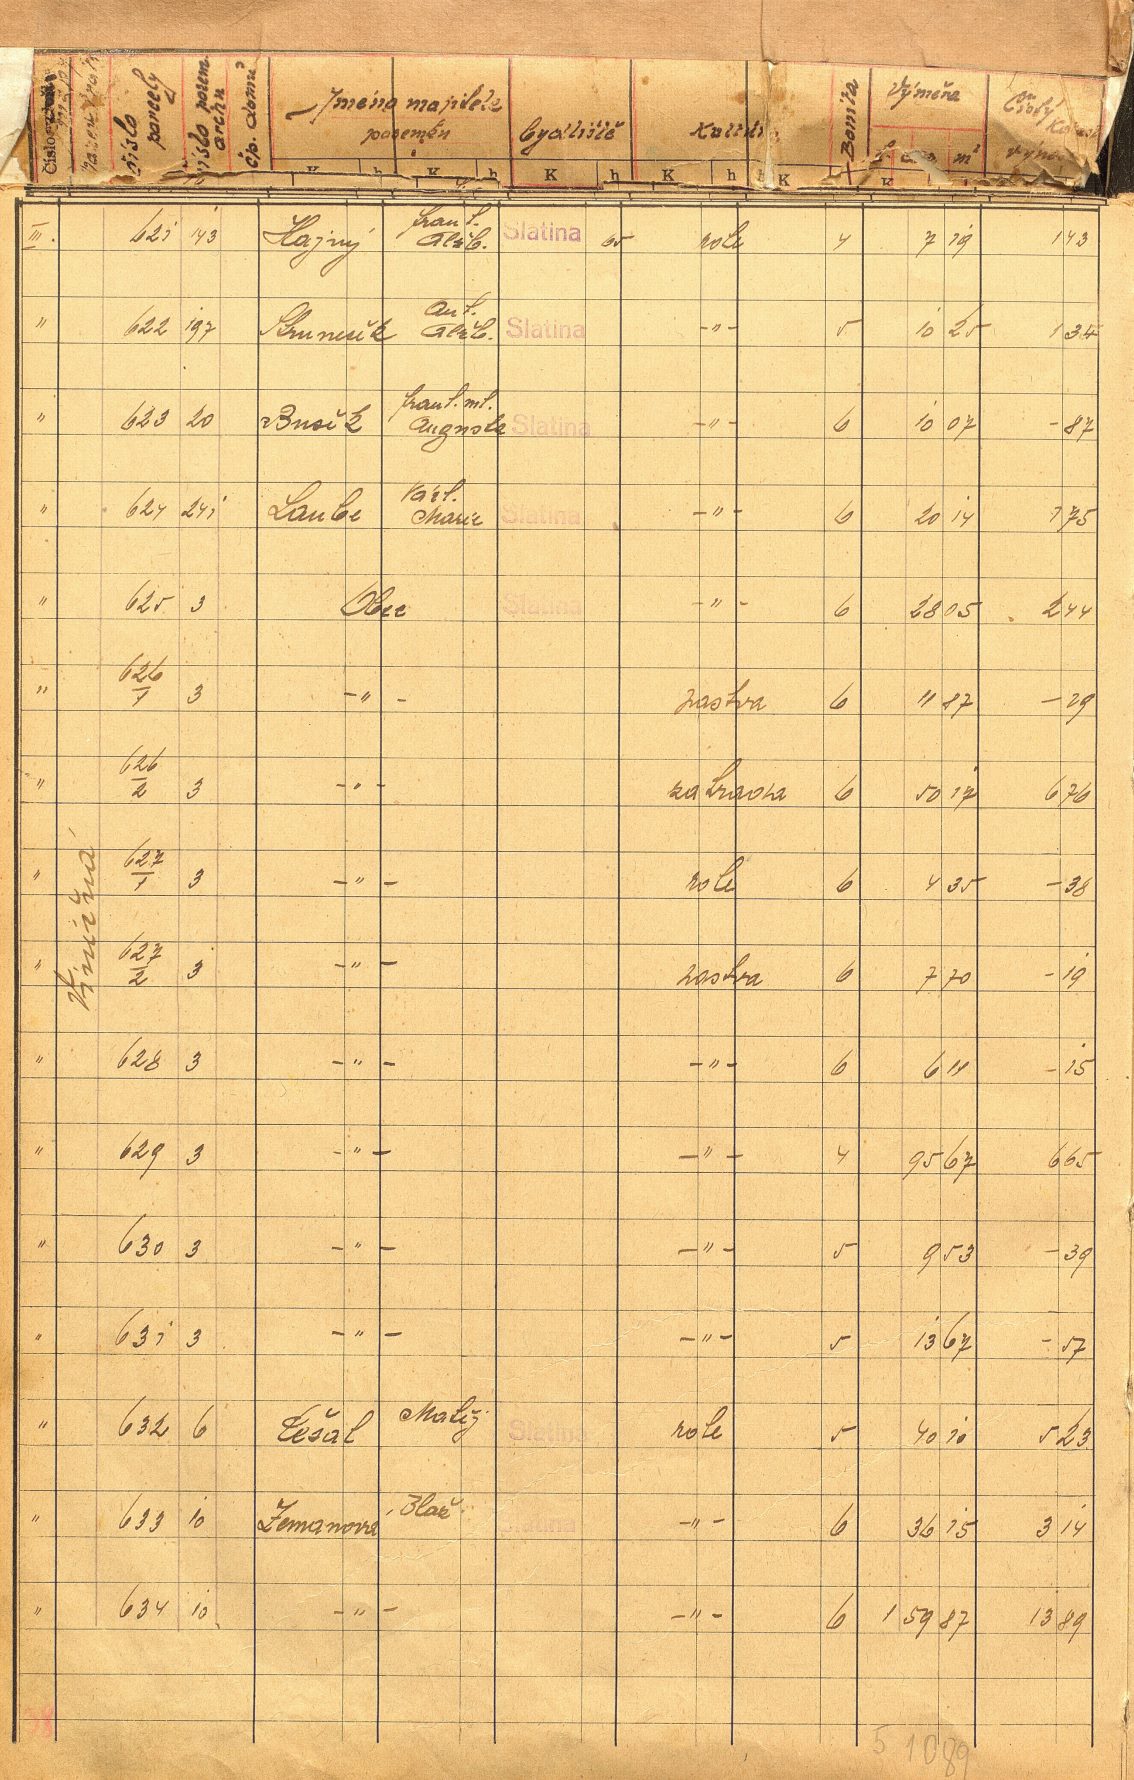 číslo parcely
číslo pozem. archu
čp. domu
Jména majitele pozemku
bydliště
Bonita
Výměra
Čistý
m²
K h K h K h K h h K K
III. 621 143 Hajný Frant. Alžb. Slatina 65 role 4 7 19 143
" 622 197 Ant. Alžb. Slatina -"- 5 10 25 134
" 623 20 Busěk Frant. ml. Auguste Slatina -"- 6 10 07 -87
" 624 241 Laube Marie Slatina -"- 6 20 14 175
" 625 3 Obec Slatina -"- 6 28 05 244
" 626/1 3 -"- pastva 6 11 87 -29
" 626/2 3 -"- zahrada 6 50 17 676
" 627/1 3 -"- role 6 4 35 -38
Viničná
" 627/2 3 -"- pastva 6 7 70 -19
" 628 3 -"- -"- 6 6 11 -15
" 629 3 -"- -"- 4 95 67 665
" 630 3 -"- -"- 5 9 53 -39
" 631 3 -"- -"- 5 13 67 -57
" 632 6 Tešal Matěj Slatina role 5 40 10 523
" 633 10 Zemanova Blaž. Slatina -"- 6 36 15 314
" 634 10 -"- -"- 6 1 59 87 13 89
51089